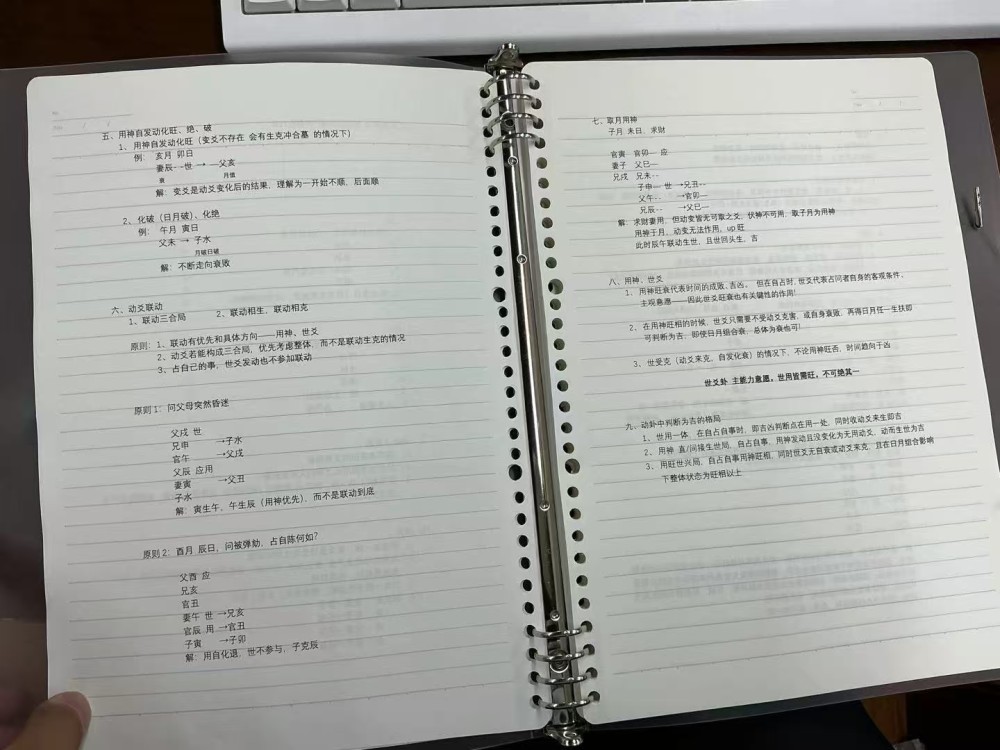 五、用神自发动化旺、绝、破
1、用神自发动化旺（变爻不存在 会有生克冲合墓 的情况下）
例： 亥月 卯日
妻辰- -世 → —父亥
衰 月值
解：变爻是动爻变化后的结果，理解为一开始不顺，后面顺
2、化破（日月破）、化绝
例： 午月 寅日
父未 → 子水
月破日破
解：不断走向衰败
六、动爻联动
1、联动三合局 2、联动相生，联动相克
原则：1、联动有优先和具体方向——用神、世爻
2、动爻若能构成三合局，优先考虑整体，而不是联动生克的情况
3、占自己的事，世爻发动也不参加联动
原则1：问父母突然昏迷
父戌 世
兄申 →子水
官午 →父戌
父辰 应用
妻寅 →父丑
子水
解：寅生午，午生辰（用神优先），而不是联动到底
原则2：酉月 辰日，问被弹劾，占自陈何如？
父酉 应
兄亥
官丑
妻午 世 →兄亥
官辰 用 →官丑
子寅 →子卯
解：用自化退，世不参与，子克辰
七、取月用神
子月 未日，求财
官寅- 官卯— 应
妻子 父巳—
兄戌 兄未--
子申— 世 →兄丑--
父午- - →官卯—
兄辰- - →父巳—
解：求财妻用，但动变皆无可取之爻，伏神不可用，取子月为用神
用神于月，动变无法作用，up旺
此时辰午联动生世，且世回头生，吉
八、用神、世爻
1、 用神旺衰代表时间的成败、吉凶， 但在自占时，世爻代表占问者自身的客观条件、
主观意愿——因此世爻旺衰也有关键性的作用！
2、 在用神旺相的时候，世爻只需要不受动爻克害，或自身衰败，再得日月任一生扶即
可判断为吉，即使日月组合衰，总体为衰也可！
3、 世受克（动爻来克，自发化衰）的情况下，不论用神旺否，时间趋向于凶
世爻卦 主能力意愿，世用皆需旺，不可绝其一
九、动卦中判断为吉的格局
1、 世用一体，在自占自事时，即吉凶判断点在用一处，同时收动爻来生即吉
2、 用神 直/间接生世局，自占自事，用神发动且没变化为无用动爻，动而生世为吉
3、 用旺世兴局，自占自事用神旺相，同时世爻无自衰或动爻来克，且在日月组合影响
下整体状态为旺相以上